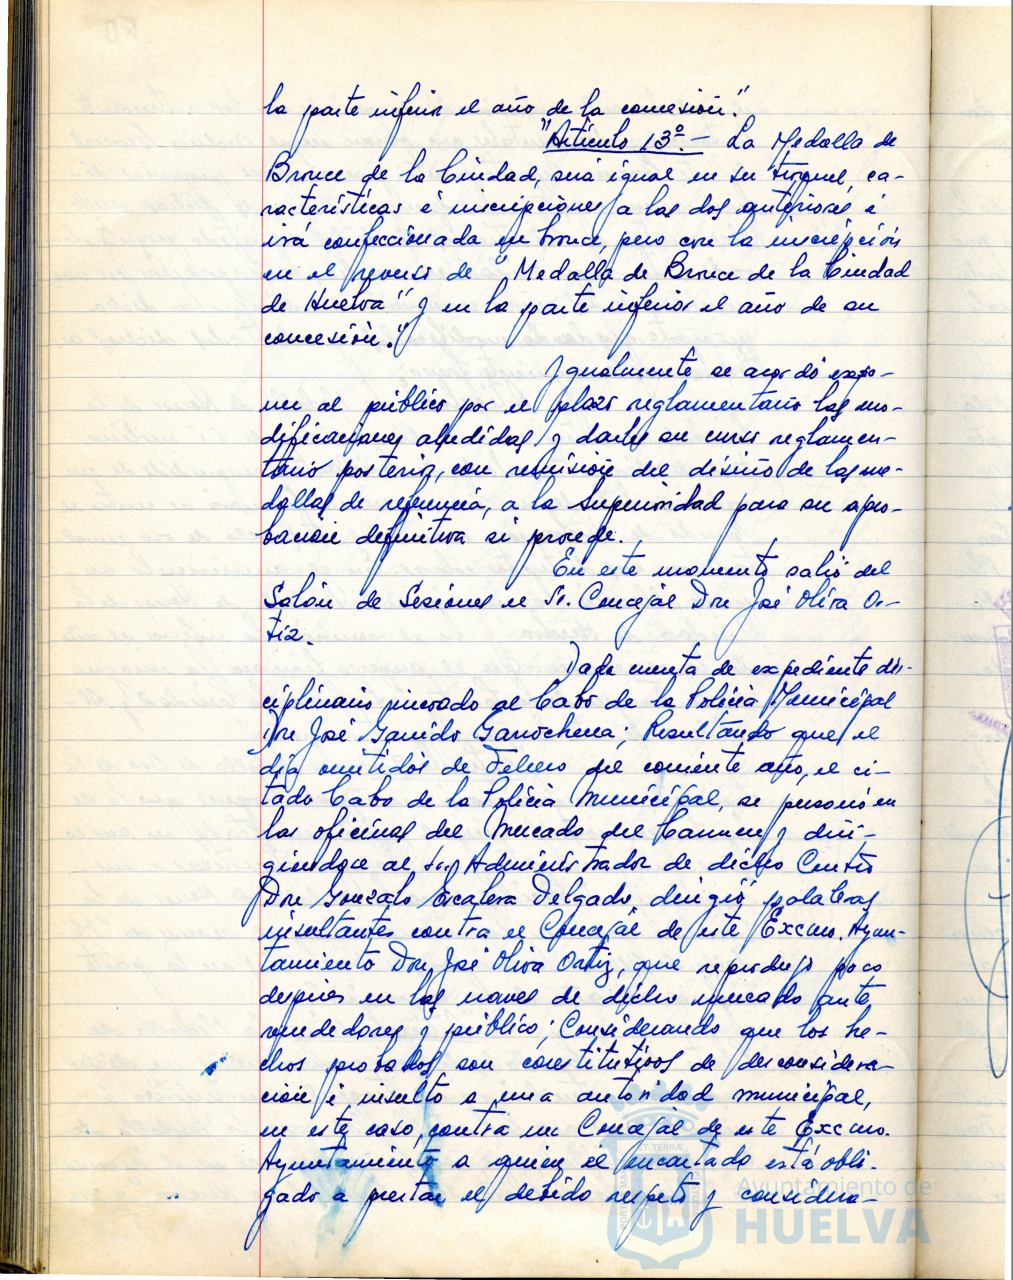 la parte inferior el año de la concesión."
"Artículo 13º.- La Medalla de
Bronce de la Ciudad, será igual en su troquel, ca-
racterísticas é inscripciones a las dos anteriores é
irá confeccionada en bronce, pero con la inscripción
en el reverso de "Medalla de Bronce de la Ciudad
de Huelva" y en la parte inferior el año de su
concesión."
Igualmente se acordó expo-
ner al público por el plazo reglamentario las mo-
dificaciones aludidas y darles su curso reglamen-
tario posterior, con remisión del diseño de las me-
dallas de referencia, a la Superioridad para su apro-
bación definitiva si procede.
En este momento salió del
Salón de Sesiones el Sr. Concejal Don José Oliva Or-
tiz.
Dada cuenta de expediente dis-
ciplinario incoado al Cabo de la Policía Municipal
Don José Garrido Garrochena; Resultando que el
día veintidos de Febrero del corriente año, el ci-
tado Cabo de la Policía Municipal, se personó en
las oficinas del Mercado del Carmen y diri-
giendose al Administrador de dicho Centro
Don Gonzalo Escalera Delgado, dirigió palabras
insultantes contra el Concejal de este Excmo. Ayun-
tamiento Don José Oliva Ortiz, que reprodujo poco
despues en las naves de dicho mercado ante
vendedores y público; Considerando que los he-
chos probados, son constitutivos de desconsidera-
ción é insulto a una autoridad municipal,
en este caso, contra un Concejal de este Excmo.
Ayuntamiento a quien el encartado está obli-
gado a prestar el debido respeto y considera-
Ayuntamiento de
HUELVA